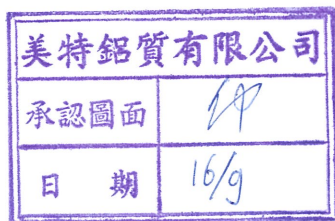 美特鋁質有限公司
承認圖面
日期 16/9